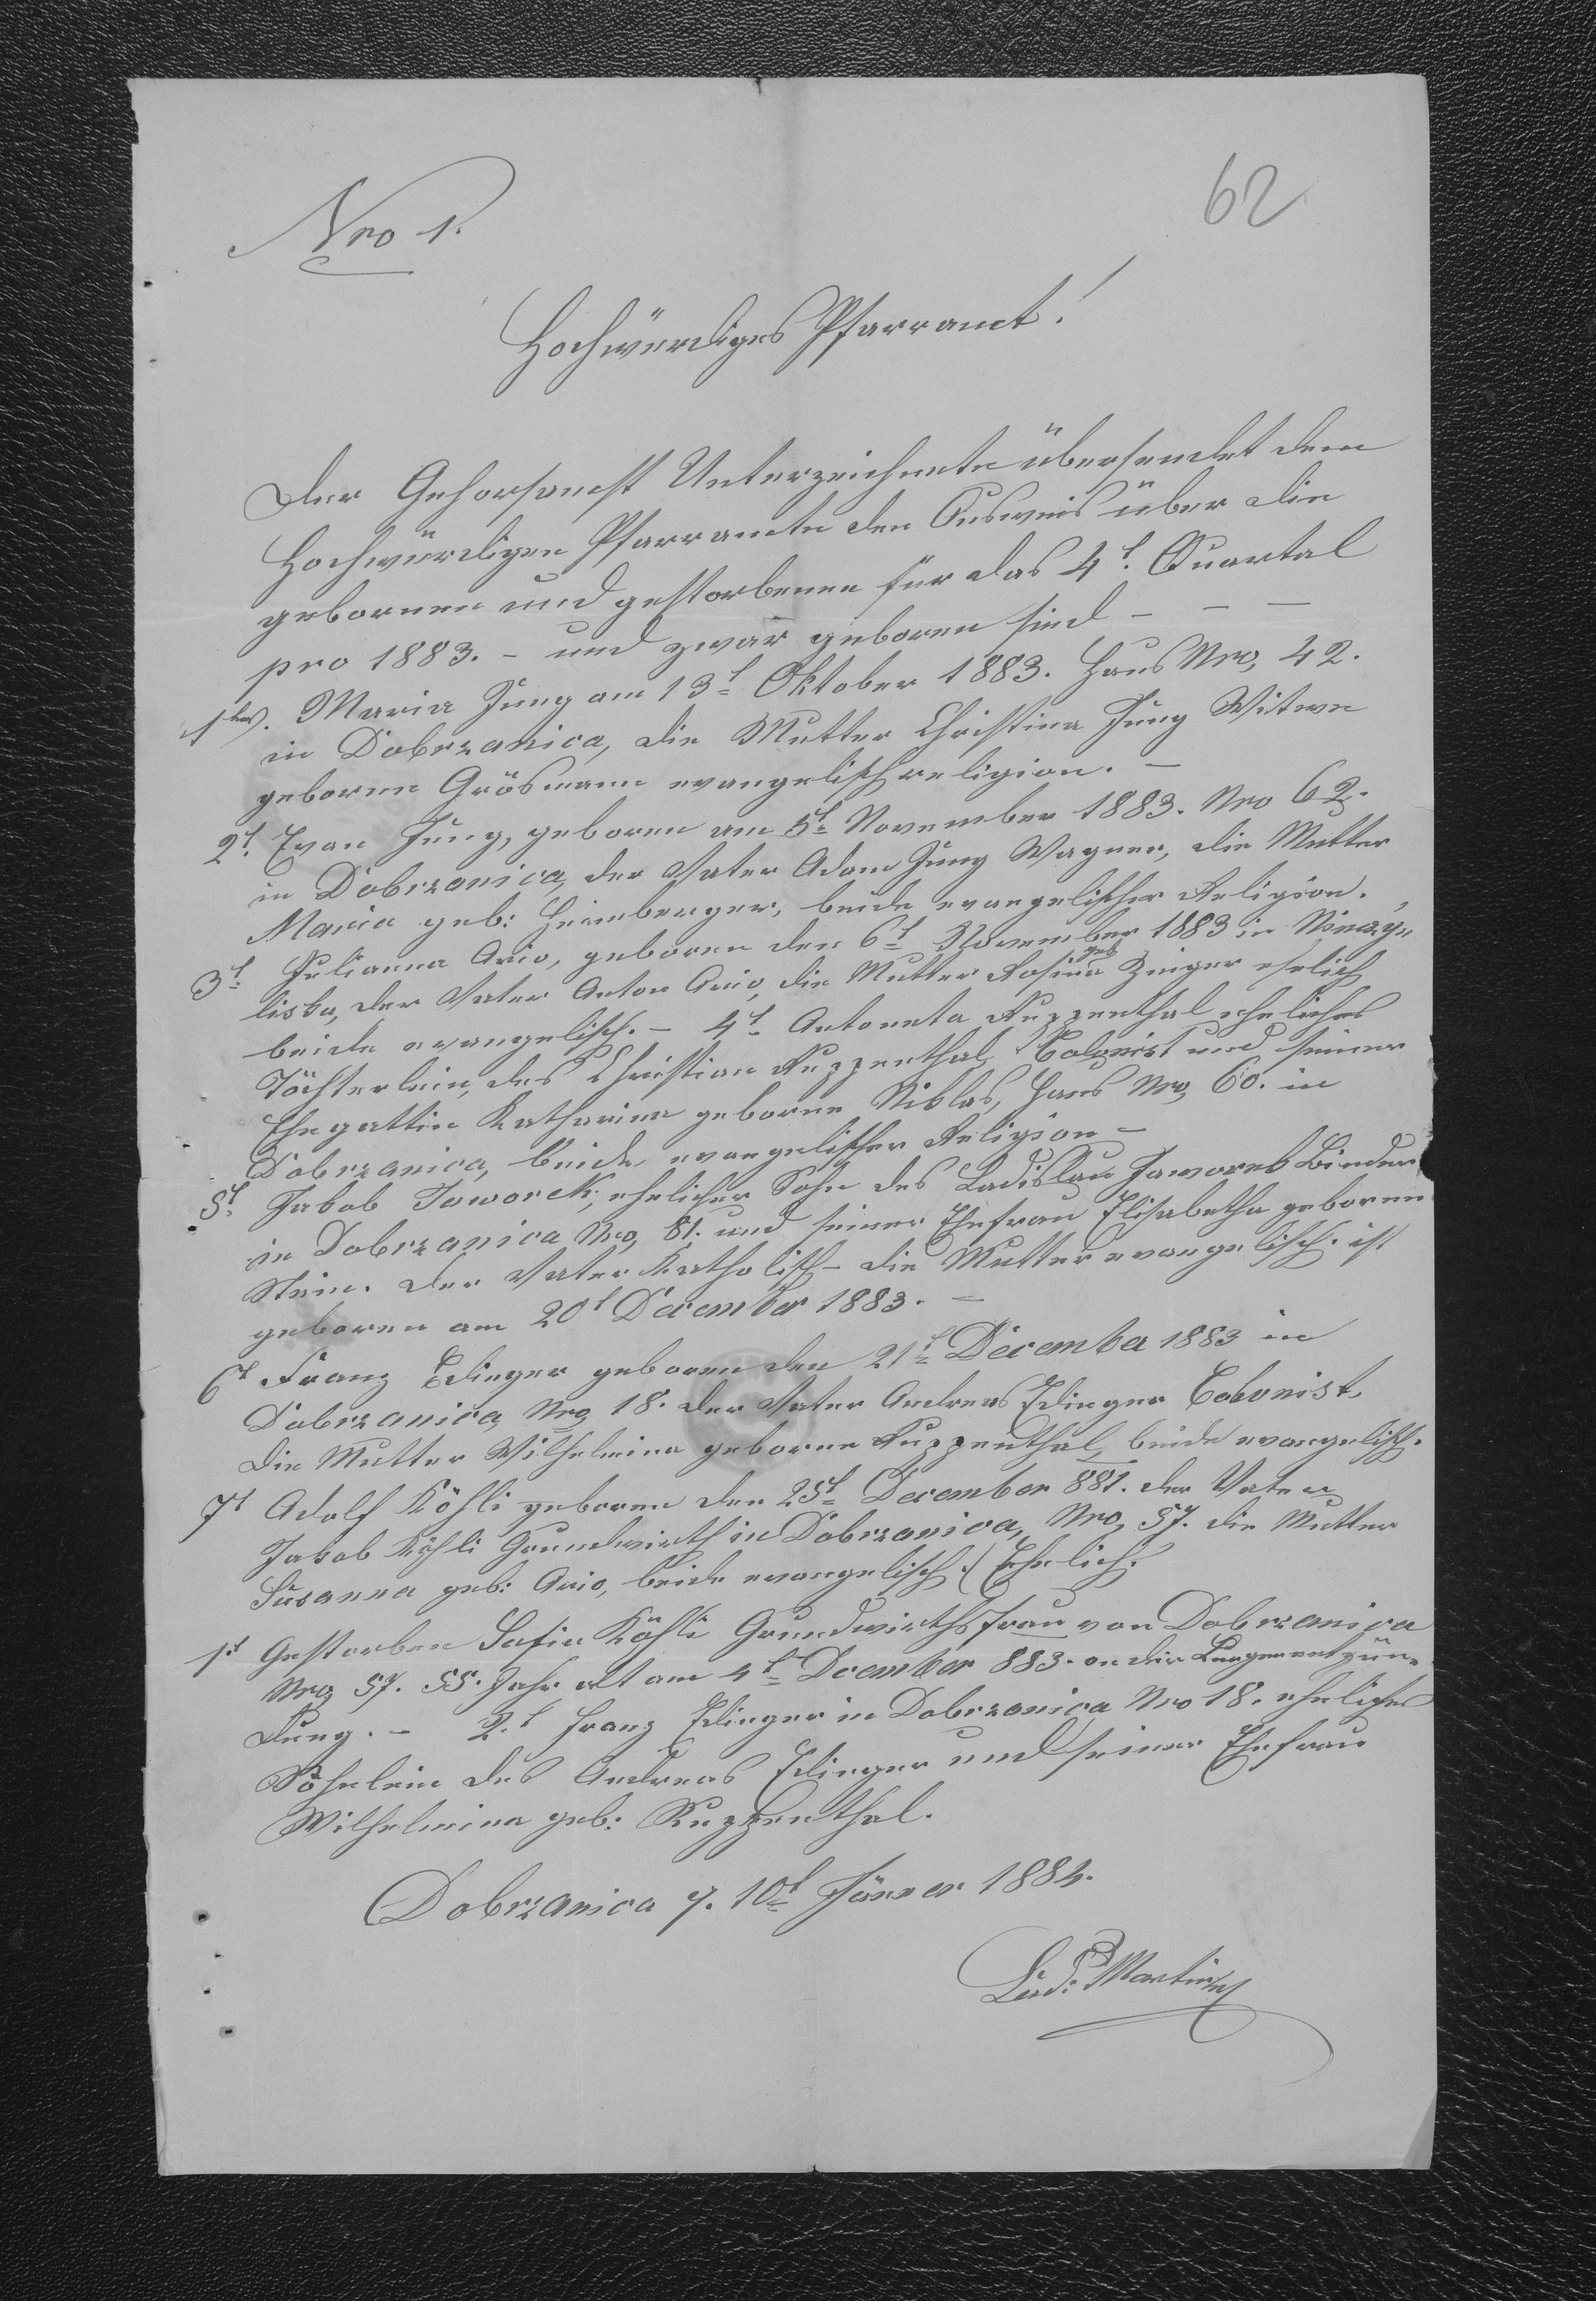 62
Nro 1.
Hochwürdiges Pfarramt!
Der Gehorsamst Unterzeichnete übersendet dem
Hochwürdigen Pfarramte den Ausweis über die
gebornen und gestorbenen für das 4t. Quartal
pro 1883. – und zwar geboren sind – – –
1tens. Maria Jung am 13t Oktober 1883. Haus Nro, 42.
in Dobrzanica, die Mutter Christina Jung Witwe
geborene Grösmann evangelisch religion. –
2t. Evan Jung, geboren am 5t November 1883. Nro 62.
in Dobrzanica, der Vater Adam Jung Wagner, die Mutter
Maria geb: Heimberger, beide evangelischer Religion.
3t. Julianna Ario, geboren den 6t November 1883 in
der Vater Anton Ario, die Mutter Rosina geb Zinger ehelich
beide evangelisch. – 4t Antoneta Ruppenthal eheliches
Töchterlein, des Christian Ruppenthal, Colonist und seiner
Ehegattin Katharina geborene Niklas, Haus Nro, 60. in
Dobrzanica, beide evangelischer Religion –
5t. Jakob Jaworek, ehelicher Sohn des Ladislau Jaworek Binder
in Dobrzanica Nro, 81. und seiner Ehefrau Elisabetha geborene
Stein. Der Vater Katholisch – die Mutter evangelisch. ist
geboren am 20t December 1883. –
6t Franz Edinger geboren den 21t December 1883 in
Dobrzanica, Nro 18. der Vater Andreas Edinger Colonist,
die Mutter Wilhelmina geborene Ruppenthal, beide evangelisch.
7t Adolf Köhli geboren den 25t December 881. der Vater
Jakob Köhli Grundwirth in Dobrzanica, Nro, 57. die Mutter
Susanna geb: Ario, beide evangelisch. (Ehelich.
1t Gestorben Sofia Köhli Grundwirthsfrau von Dobrzanica
Nro, 57. 55. Jahr alt am 4t December 883. an der Lungenentzün-
dung. – 2.t Franz Edinger in Dobrzanica Nro 18. eheliches
Söhnlein des Andreas Edinger und seiner Ehefrau
Wilhelmina geb: Ruppenthal.
Dobrzanica 7. 10t Jänner 1884.
Lud: Martin